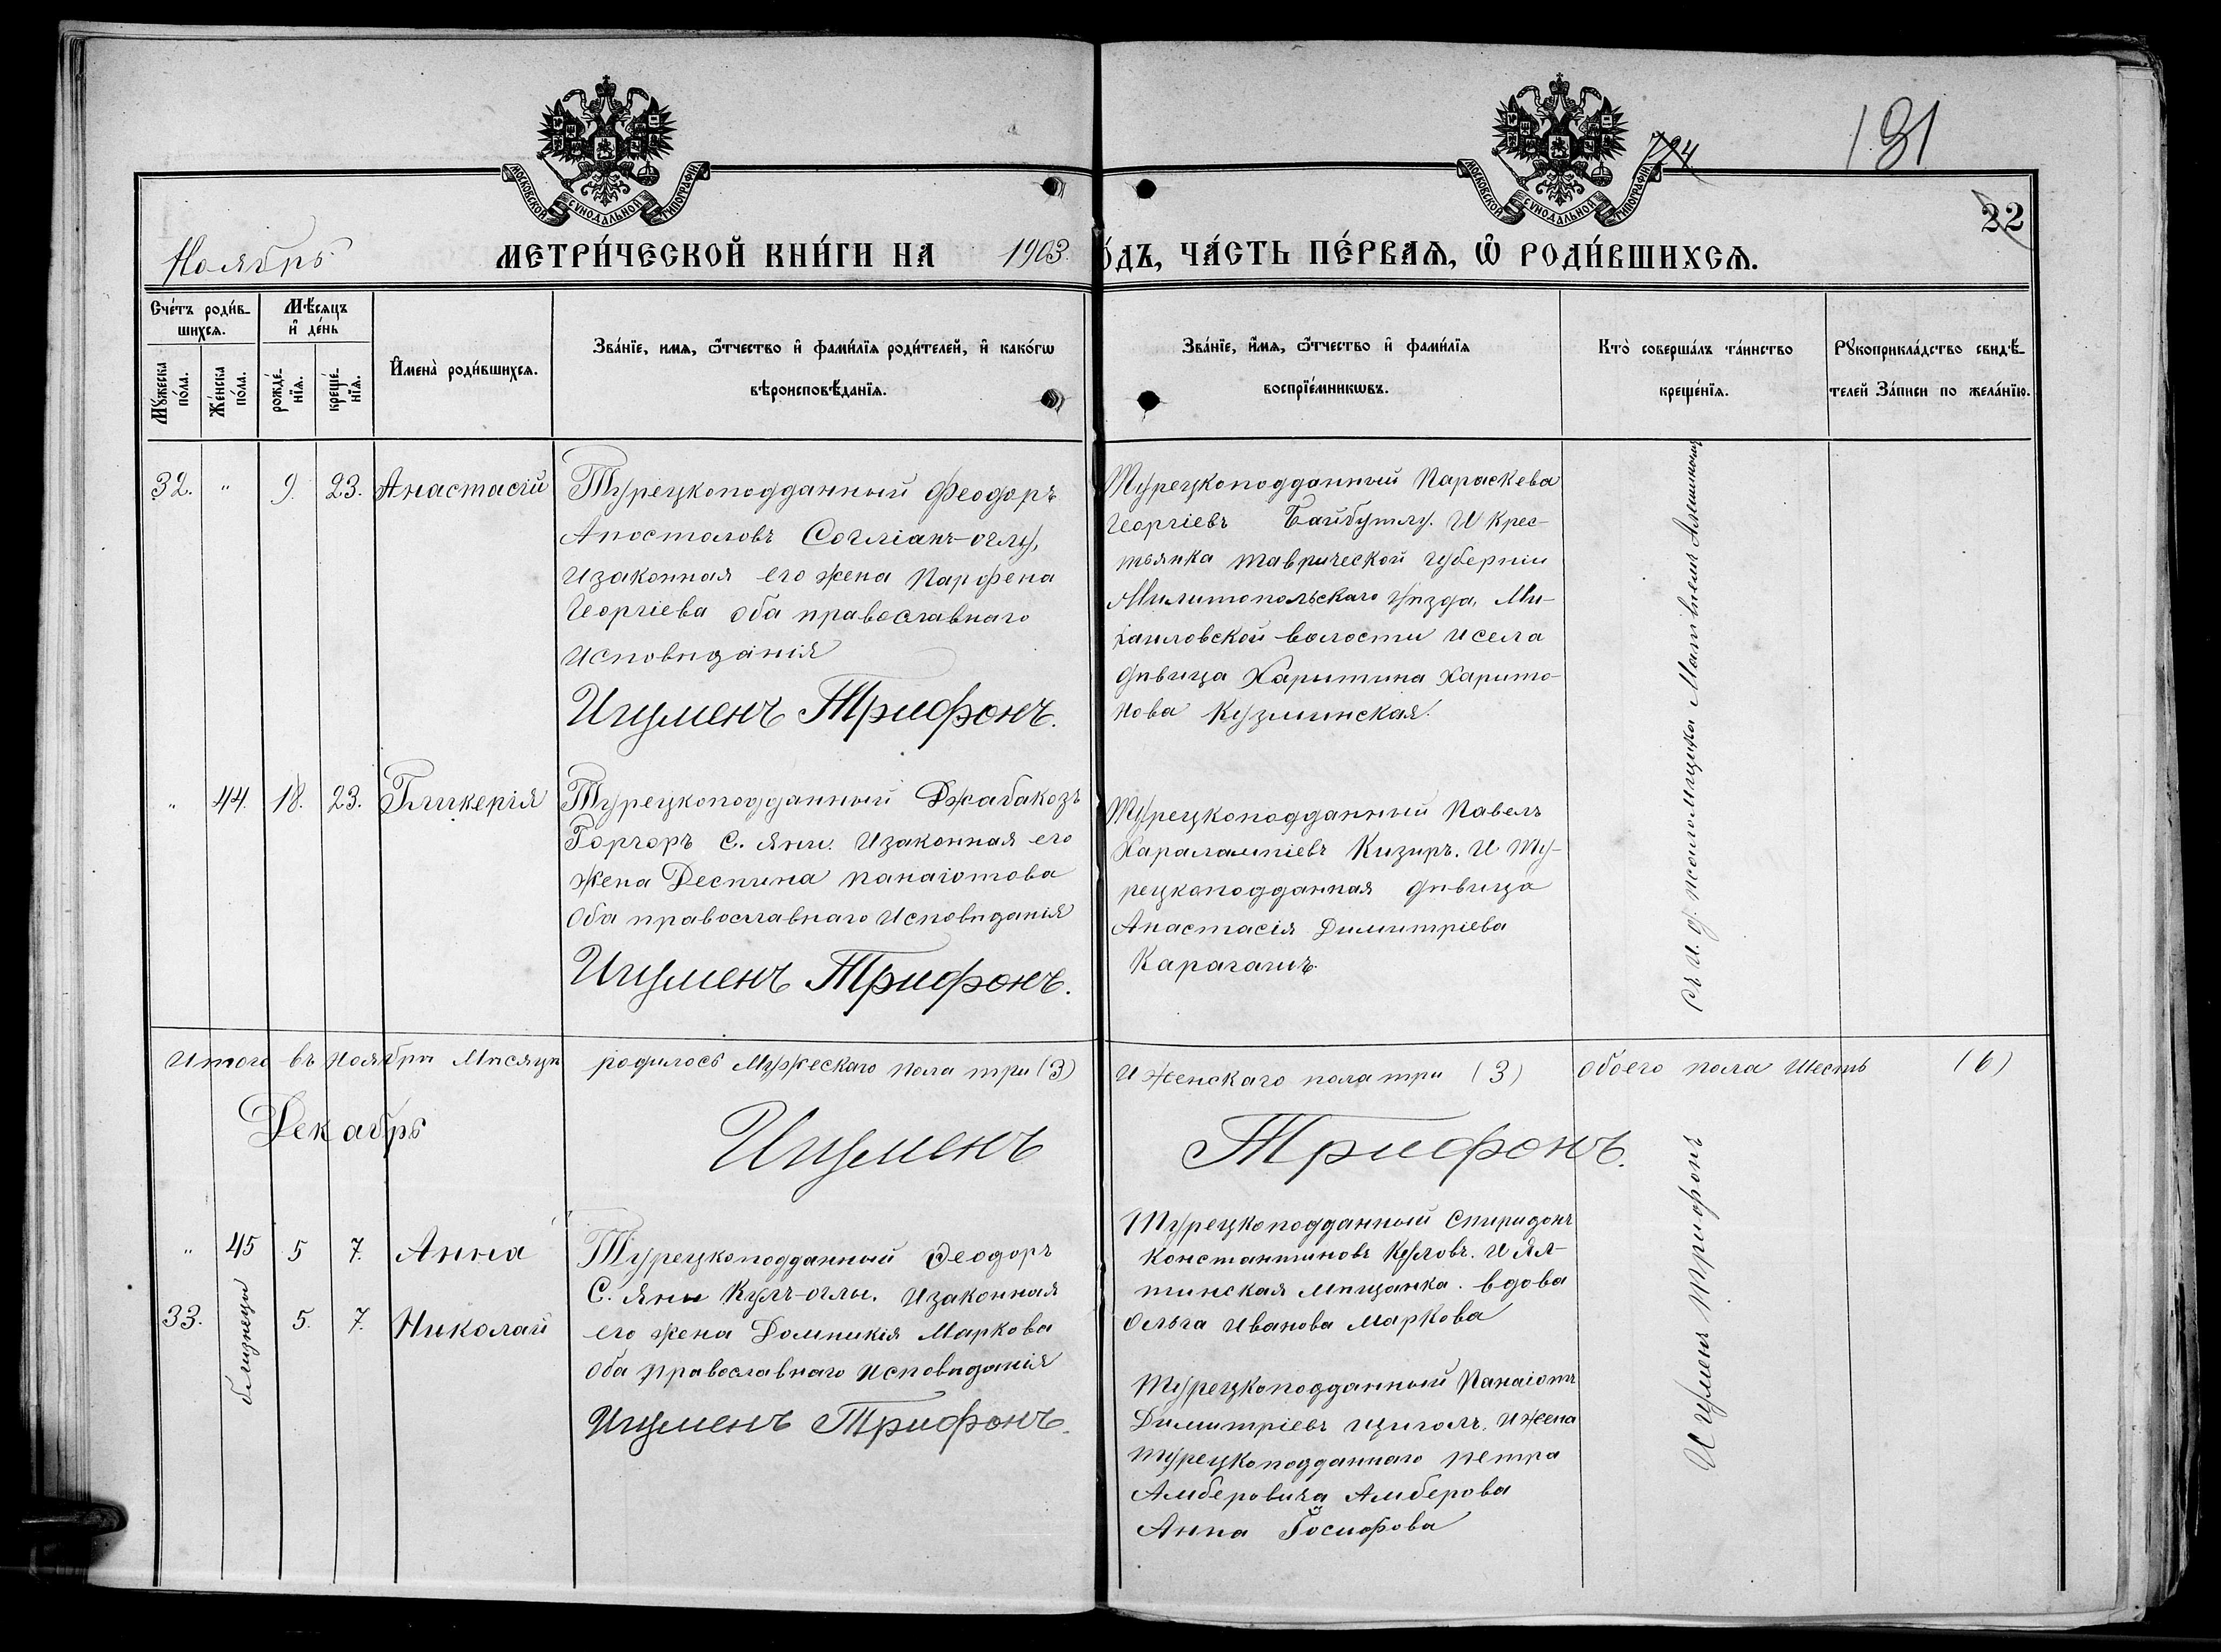 МОСКОВСКОЙ СѴНОДАЛЬНОЙ ТИПОГРАФІИ
МОСКОВСКОЙ СѴНОДАЛЬНОЙ ТИПОГРАФІИ
131
22
Ноябрь
МЕТРИ́ЧЕСКОЙ КНИ́ГИ НА 1903.
О́ДЪ, ЧА́СТЬ ПЕ́РВАѦ, Ѡ҆ РОДИ́ВШИХСѦ.
Сче́тъ роди́в-
шихсѧ.
Мѣ́сяцъ
и҆ де́нь
Мꙋ́жеска
по́ла.
Же́нска
по́ла.
рожде́-
нїѧ.
креще́-
нїѧ.
И҆мена̀ роди́вшихсѧ.
Зва́нїе, имѧ, ѻ҆́тчество и҆ фами́лїѧ роди́телей, и҆ како́гѡ
вѣроисповѣ́данїѧ.
Зва́нїе, и҆́мѧ, ѻ҆́тчество и҆ фами́лїѧ
воспрїе́мникѡвъ.
Кто̀ соверша́лъ та́инство
креще́нїѧ.
Рꙋкоприкла́дство свидѣ́-
телей За́писи по жела́нїю.
32. " 9. 23. Анастасій
Турецкоподданный Феодоръ
Апостоловъ Согліанъ-оглу,
И законная его жена Парфена
Георгіева оба православнаго
Исповѣданія
Игуменъ Трифонъ.
Турецкоподданный Параскева
Георгіевъ Байбутлу. И Крес-
тьянка таврической губерніи
Милитопольскаго уѣзда, Ми-
хаиловской волости и села
дѣвица Харитина Харито-
нова Кузминская.
" 44. 18. 23. Гликерія
Турецкоподданный Джабакозъ
Горгоръ С. Яни. И законная его
жена Деспина Панаіотова
Оба православнаго Исповѣданія
Игуменъ Трифонъ.
Турецкоподданный Павелъ
Харалампіевъ Кизиръ. И Ту-
рецкоподданная дѣвица
Анастасія Димитріева
Карагачъ.
Съ И. д. псаломщика Матвѣемъ
Итого въ Ноябрѣ Мѣсяцѣ родилось Мужескаго пола три (3) И Женскаго пола три (3) Обоего пола Шесть (6)
Декабрь
Игуменъ Трифонъ.
" 45 5 7. Анна
33. 5. 7. Николай
близнецы
Турецкоподданный Феодоръ
С. Яни Кулъ-оглы. И законная
его жена Домникія Маркова
Оба православнаго Исповѣданія
Игуменъ Трифонъ.
Турецкоподданный Спиридонъ
Константиновъ Кесловъ. И Ял-
тинская мѣщанка. вдова
Ольга Иванова Маркова
Турецкоподданный Панаіотъ
Димитріевъ Циголъ. И жена
Турецкоподданнаго Петра
Амберовича Амберова
Анна Іосифова
Игуменъ Трифонъ